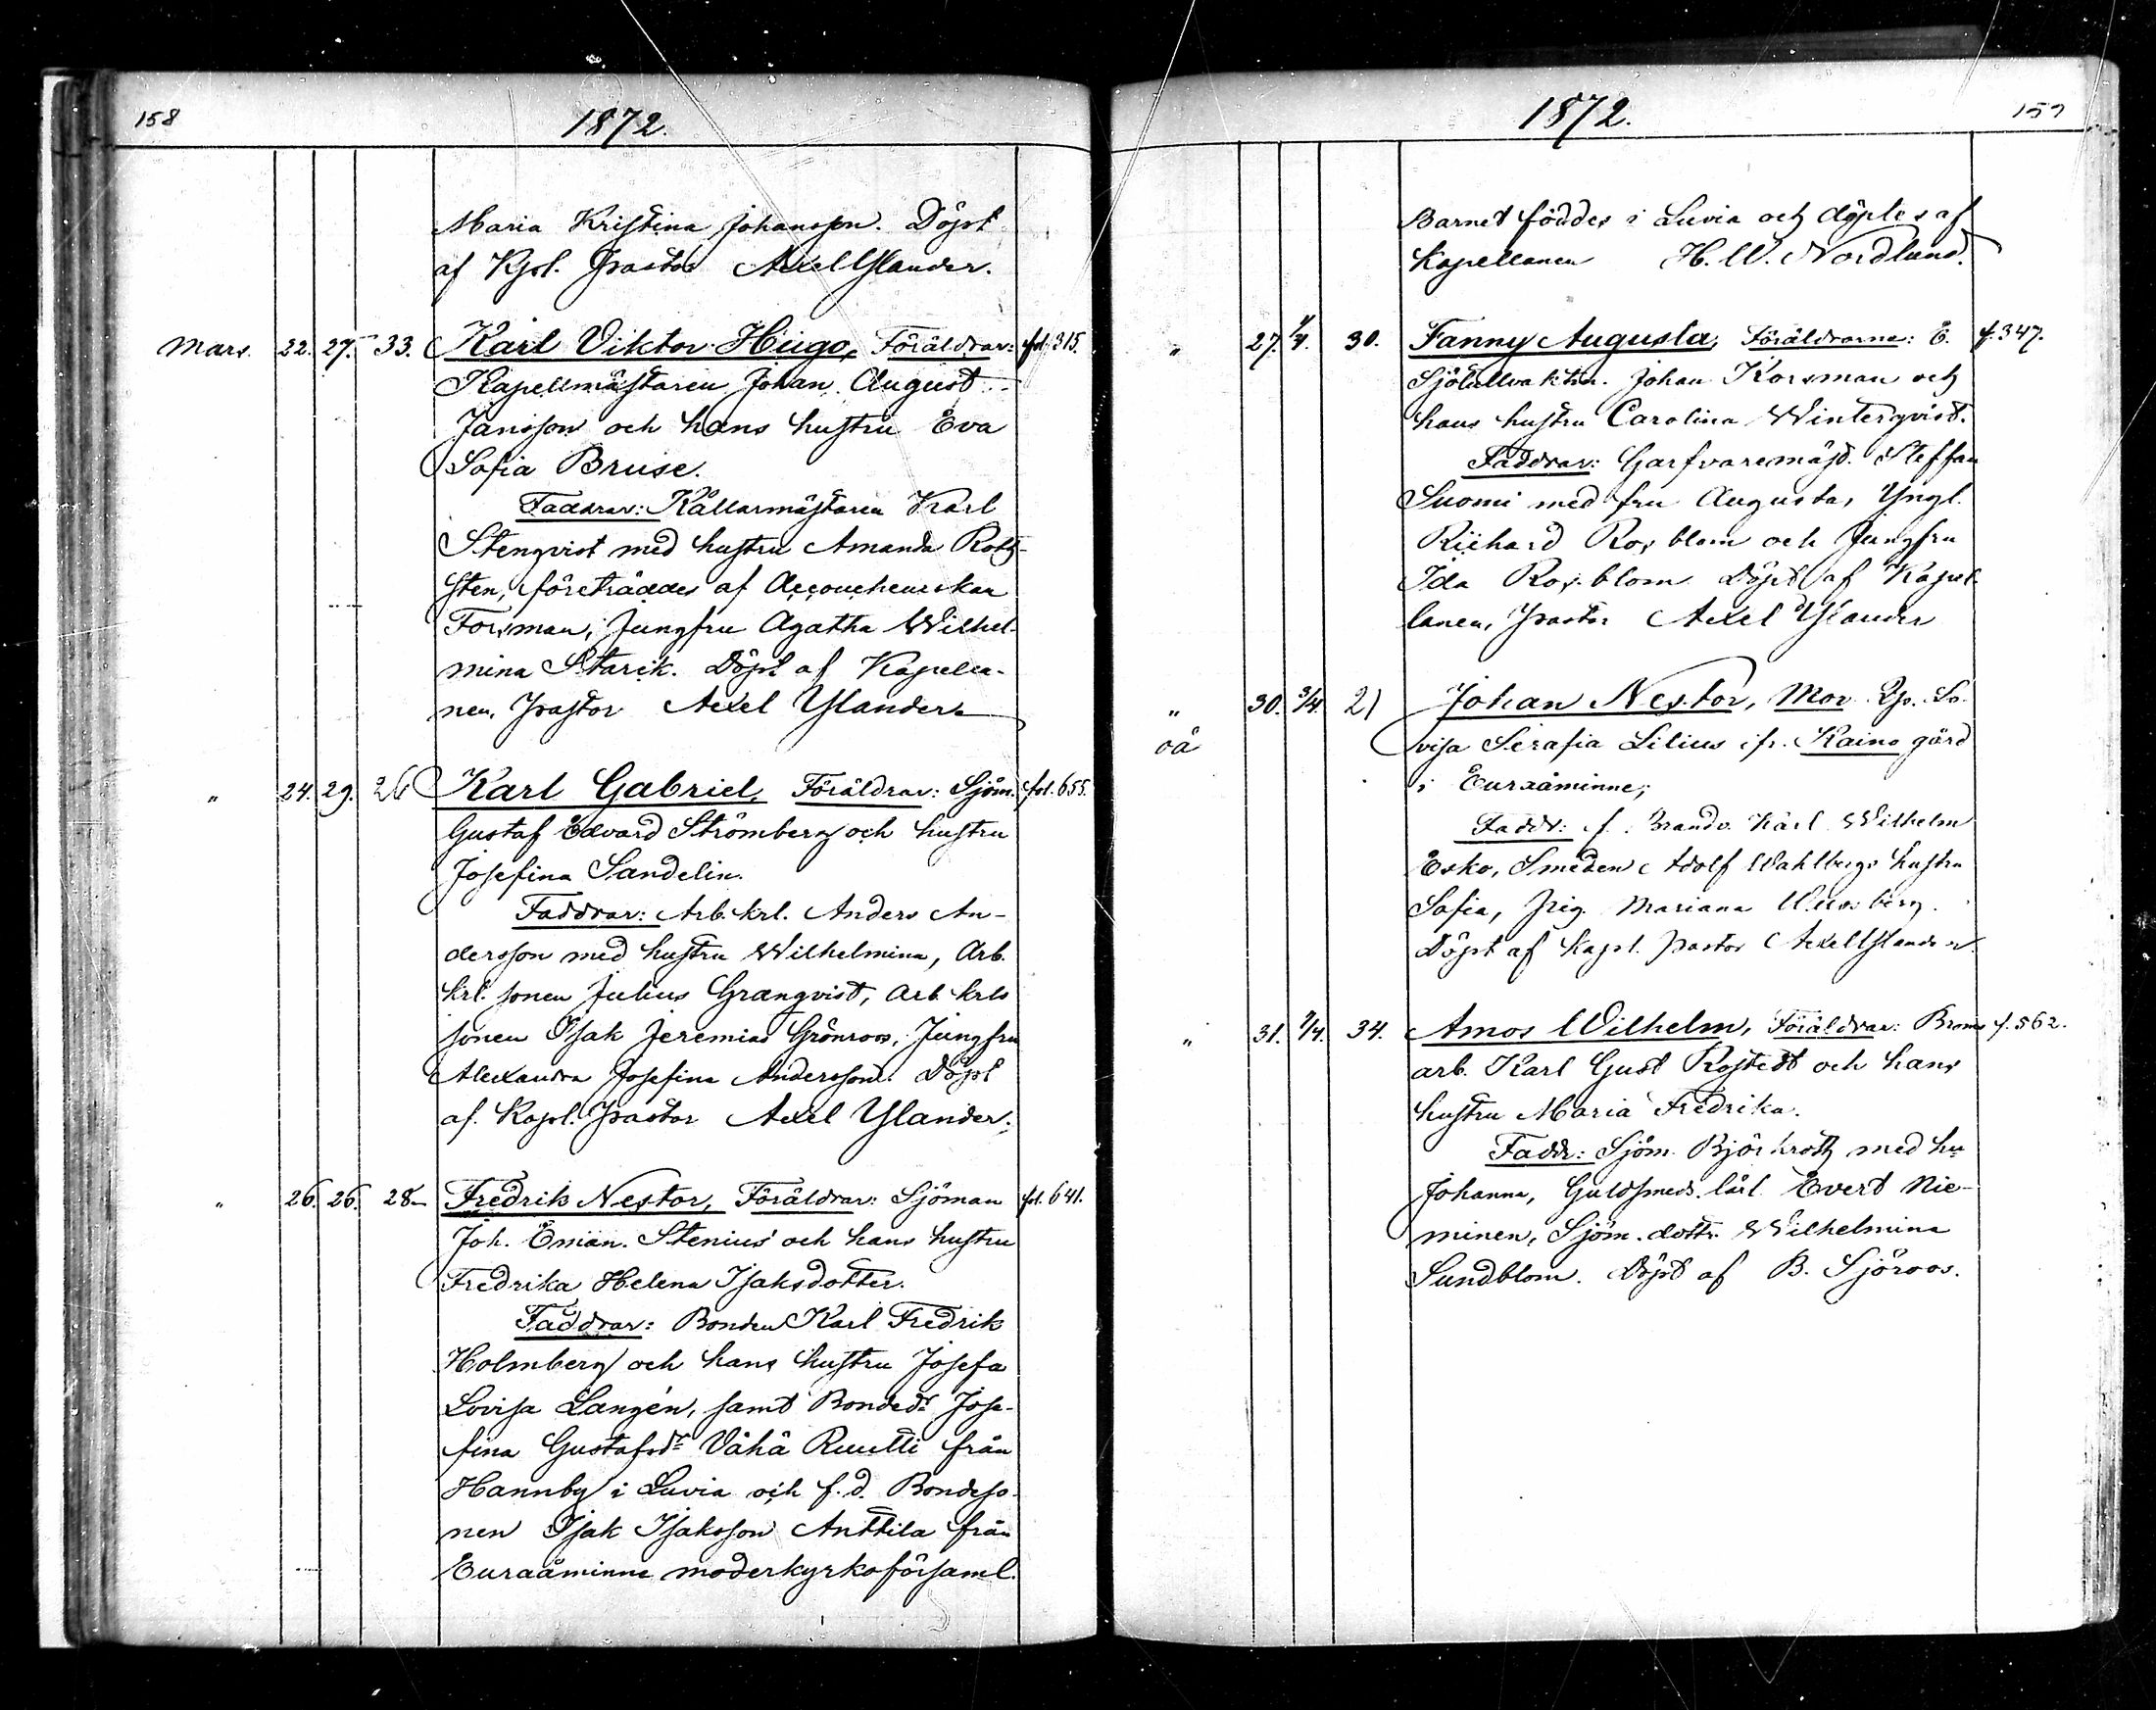 158
1872.
Maria Kristina Johansson. Döpt
af Kpl. Pastor Axel Ylander.
Mars. 22. 27. 33. Karl Viktor Hugo, Föräldrar: fol. 315.
Kapellmästaren Johan August
Jansson och hans hustru Eva
Sofia Bruse.
Faddrar: Källarmästaren Karl
Stenqvist med hustru Amanda Roth-
sten, företräddes af Accoucheurskan
Forsman, Jungfru Agatha Wilhel-
mina Starck. Döpt af Kapella-
nen, Pastor Axel Ylander
" 24. 29. 26 Karl Gabriel, Föräldrar: Sjöm. fol. 655.
Gustaf Edvard Strömberg och hustru
Josefina Sandelin.
Faddrar: Arb. krl. Anders An-
dersson med hustru Wilhelmina, Arb.
krl. sonen Julius Granqvist, Arb. krls
sonen Isak Jeremias Grönroos, Jungfru
Alexandra Josefina Andersson. Döpt
af Kapl. Pastor Axel Ylander.
" 26. 26. 28 Fredrik Nestor, Föräldrar: Sjöman fol. 641.
Joh. Eman. Stenius och hans hustru
Fredrika Helena Isaksdotter.
Faddrar: Bonden Karl Fredrik
Holmberg och hans hustru Josefa
Lovisa Langén, samt Bondedr Jose-
fina Gustafsdr Vähä Ruutti från
Hannby i Luvia och f.d. Bondeso-
nen Isak Isaksson Anttila från
Euraåminne moderkyrkoförsaml.
1872.
159
Barnet föddes i Luvia och döptes af
Kapellanen H. W. Nordlund.
" 27. 1/4. 30. Fanny Augusta, Föräldrarne: E. f. 347.
Sjötullvaktm. Johan Korsman och
hans hustru Carolina Winterqvist.
Faddrar: Garfvaremäst. Steffan
Suomi med fru Augusta, Yngl.
Richard Rosblom och Jungfru
Ida Rosblom Döpt af Kapel-
lanen, Pastor Axel Ylander
" 30. 3/4. 21 Johan Nestor, Mor Lo-
oä
visa Serafia Lilius ifr. Kaino gård
i Euraåminne;
Faddr: f. Brandv. Karl Wilhelm
Esko, Smeden Adolf Wahlbergs hustru
Sofia, Pig. Mariana
Döpt af Kapl. pastor Axel Ylander.
" 31. 7/4. 34. Amos Wilhelm, Föräldrar: Broms f. 562.
arb. Karl Gust Rostedt och hans
hustru Maria Fredrika.
Faddr: Sjöm. Björkroth med hu
Johanna, Guldsmeds lärl. Evert Nie-
minen, Sjöm. dottr. Wilhelmina
Sundblom. Döpt af B. Sjöroos.